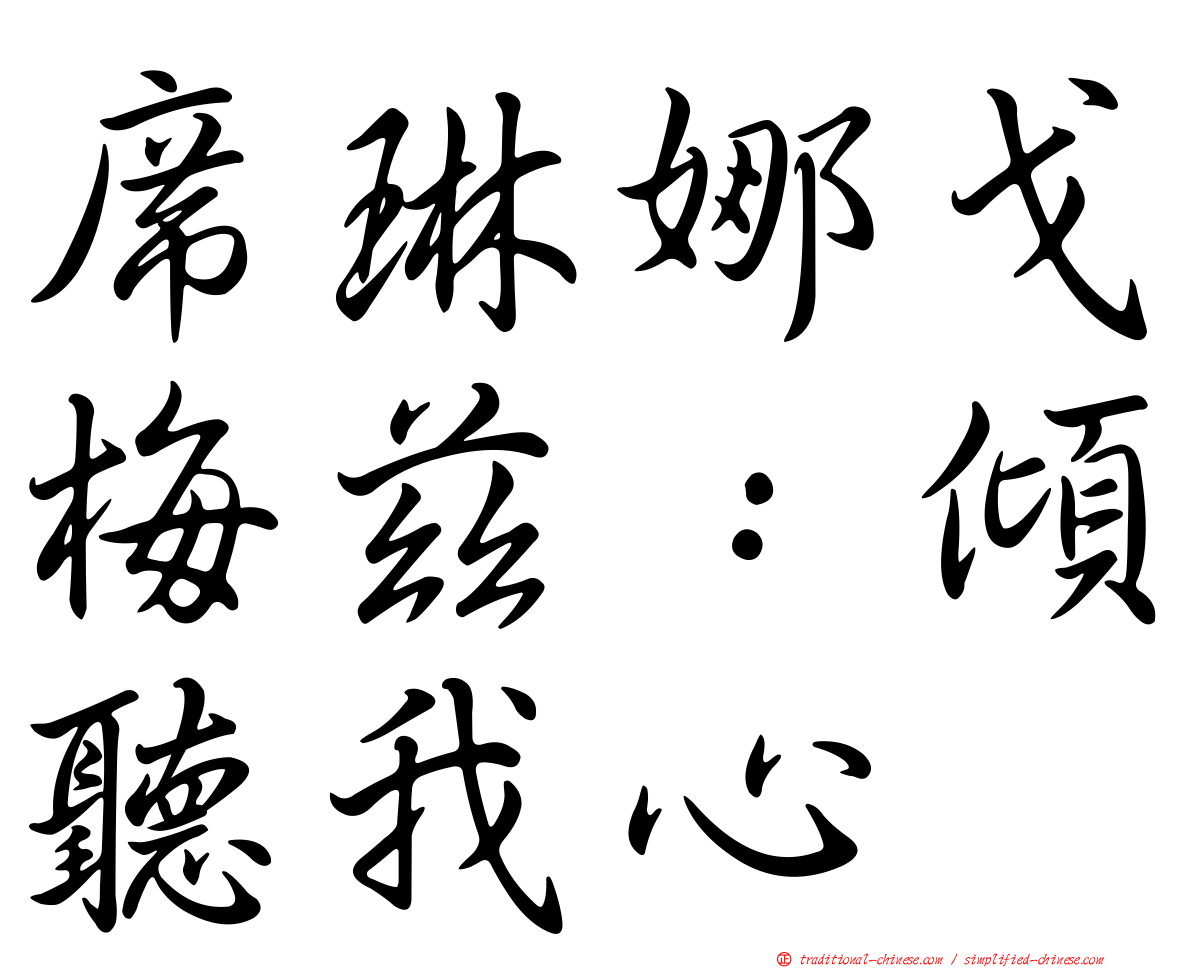 席琳娜戈
梅茲：傾
聽我心
㊣ traditional-chinese.com / simplified-chinese.com